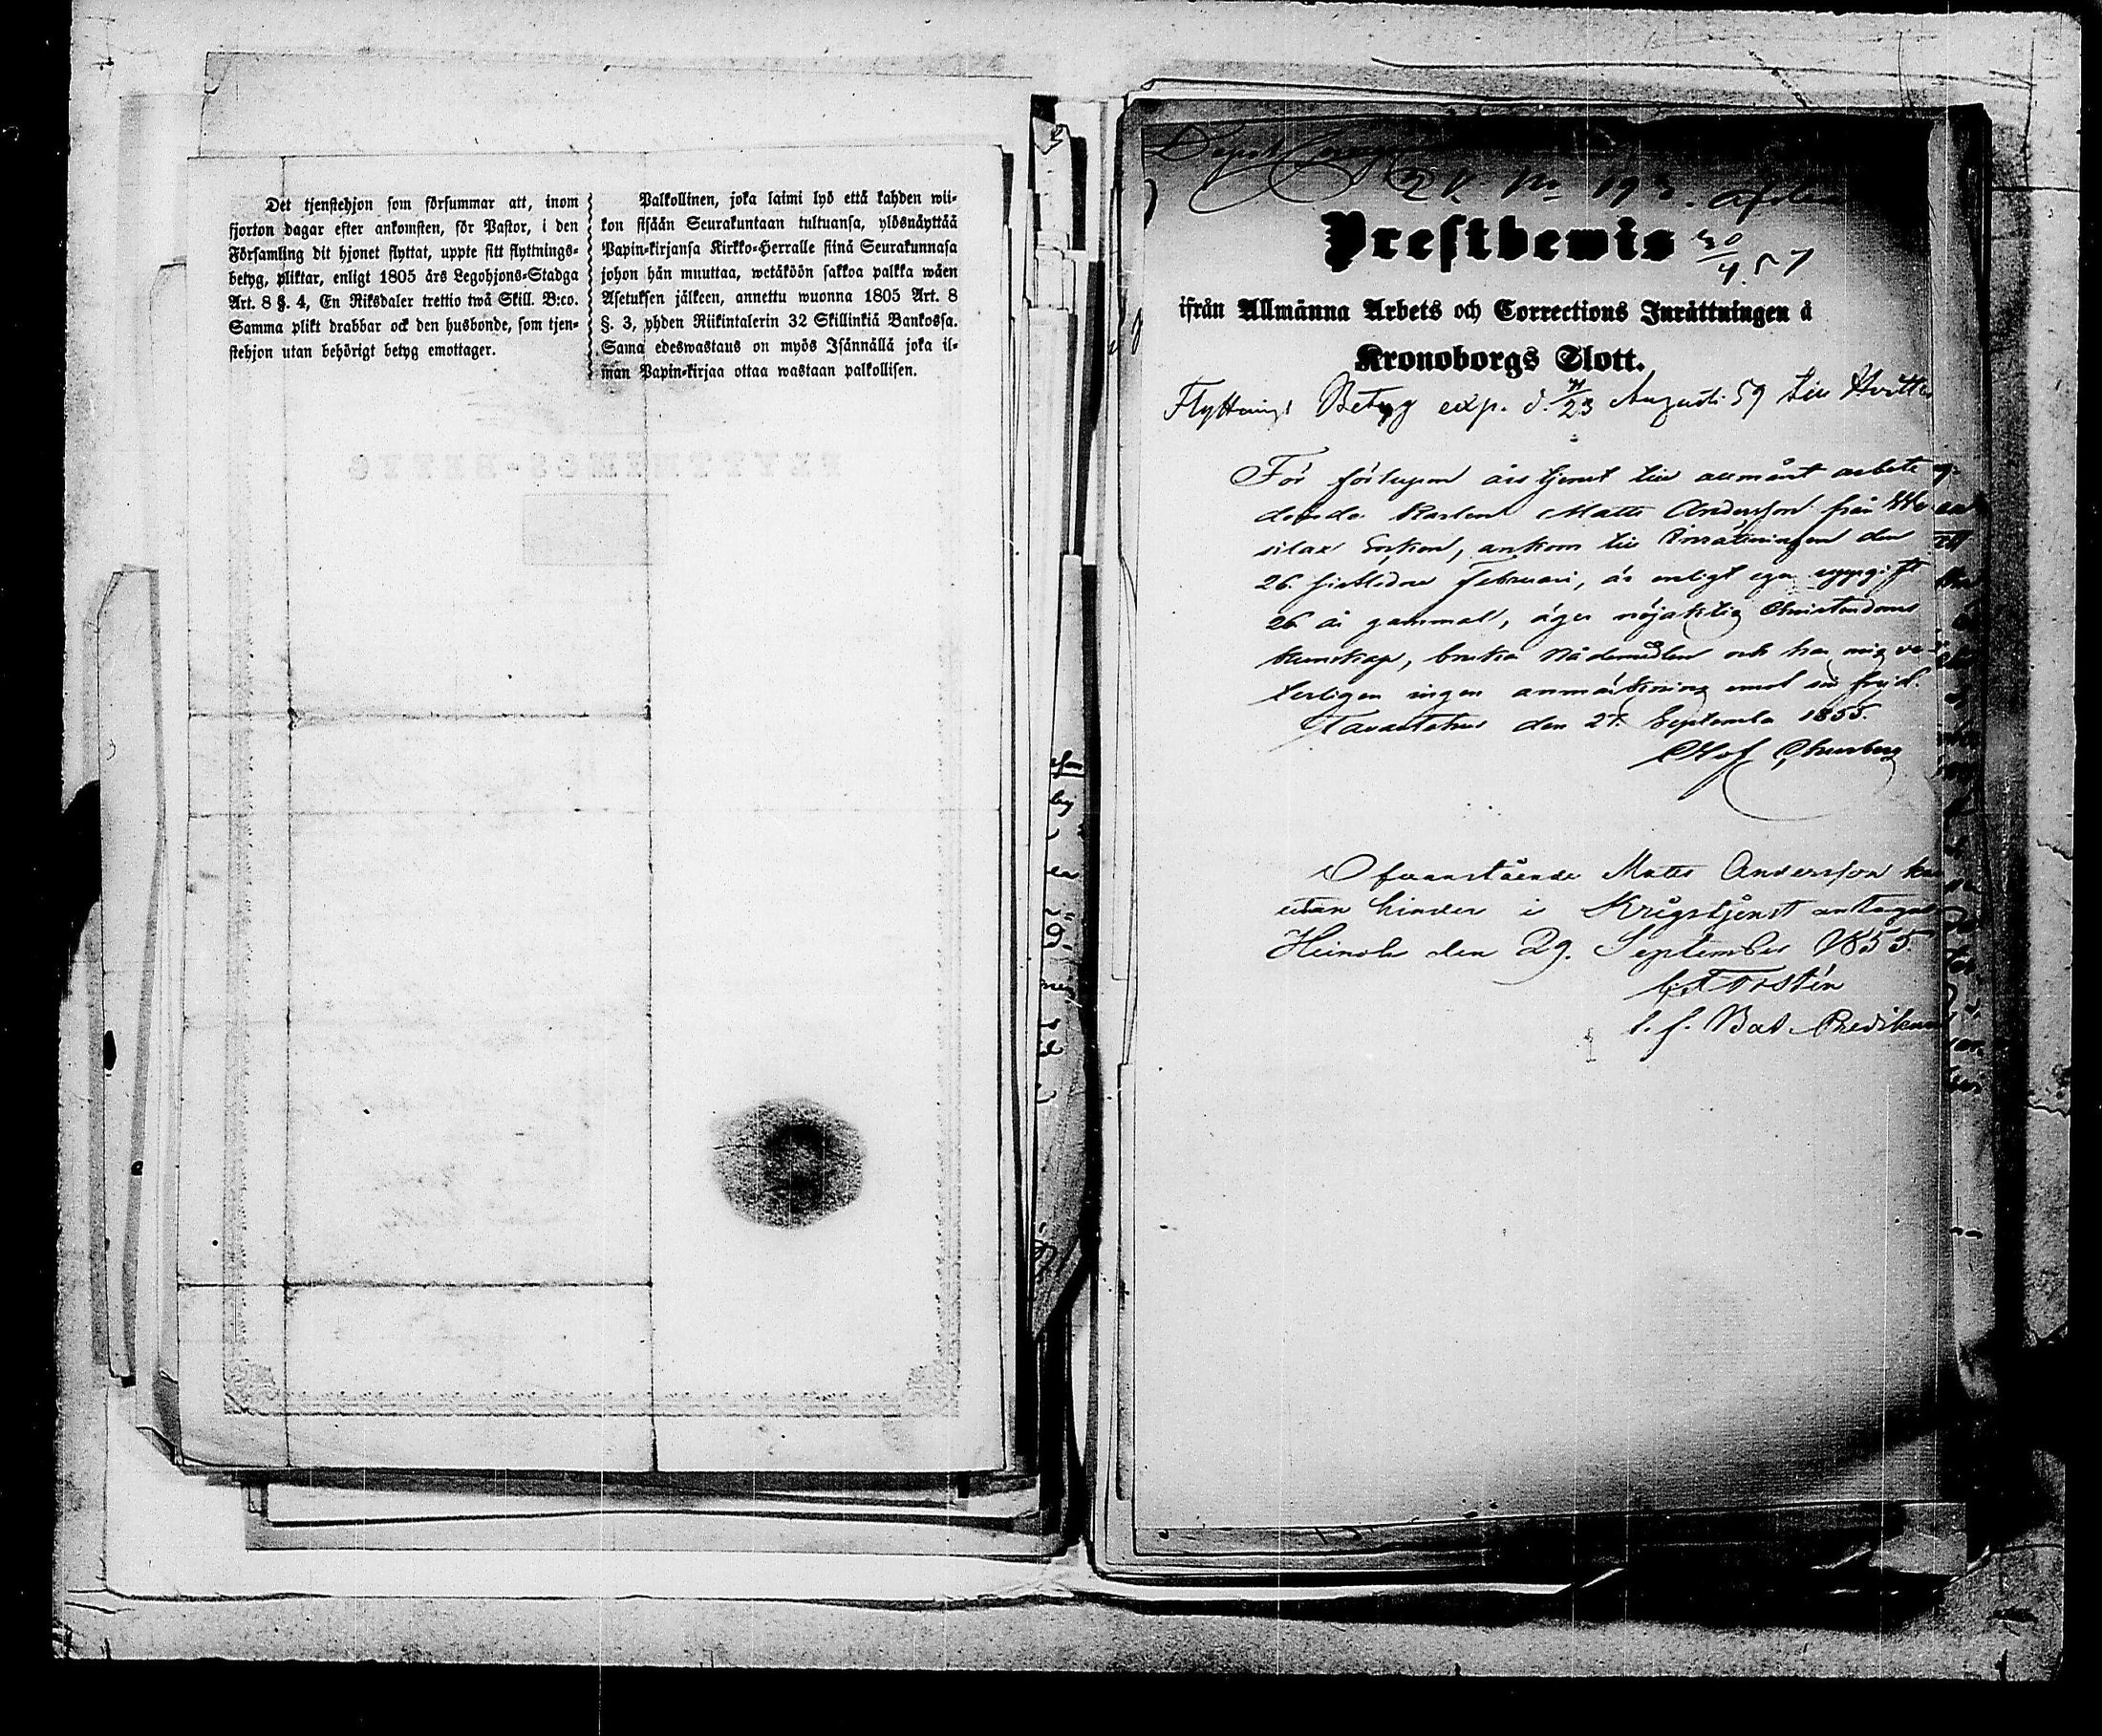 Det tjenstehjon som försummar att, inom
fjorton dagar efter ankomsten, för Pastor, i den
Församling dit hjonet flyttat, uppte sitt flyttnings-
betyg, pliktar, enligt 1805 års Legohjons-Stadga
Art. 8 §. 4, En Riksdaler trettio twå Skill. B:co.
Samma plikt drabbar ock den husbonde, som tjen-
stehjon utan behörigt betyg emottager.
Palkollinen, joka laimi lyö että kahden wii-
kon sisään Seurakuntaan tultuansa, ylösnäyttää
Papin-kirjansa Kirkko-Herralle siinä Seurakunnasa
johon hän muuttaa, wetäköön sakkoa palkka wäen
Asetuksen jälkeen, annettu wuonna 1805 Art. 8
§. 3, yhden Riikintalerin 32 Skillinkiä Bankossa.
Sama edeswastaus on myös Isännällä joka il-
man Papin-kirjaa ottaa wastaan palkollisen.
FLYTTNINGS-BETYG
Prestbewis
30/4. 57
ifrån Allmänna Arbets och Corrections Inrättningen å
Kronoborgs Slott.
Flyttnings Betyg exp. d. 23 Augusti 59 till
För förlupen års tjenst till allmänt arbete
dömde Karlen Matts Andersson från
socken, ankom till Inrättningen den
26. sistledne Februari, är enligt egen uppgift
26 år gammal, äger nöjaktig Christendoms
kunskap, brukar Nådemedlen och har mig
terligen ingen anmärkning emot sin frejd.
Tavastehus den 27. September 1855.
Olof
Ofvanstående Matts Andersson kan
utan hinder i Krigstjenst antagas
Heinola den 29. September 1855.
t. f. Bat. Predikant